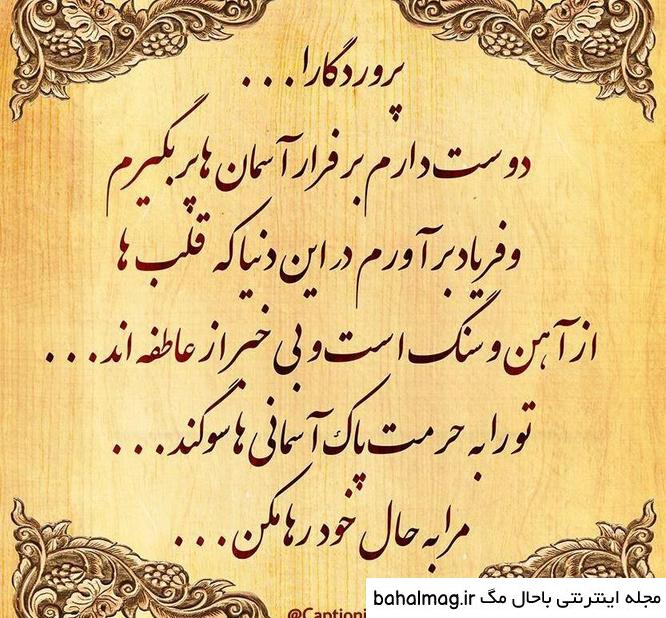 پروردگارا...
دوست دارم بر فراز آسمان ها پر بگیرم
و فریاد برآورم در این دنیا که قلب ها
از آهن و سنگ است و بی خبر از عاطفه اند...
تو را به حرمت پاک آسمانی ها سوگند...
مرا به حال خود رها مکن...
@Caption
مجله اینترنتی باحال مگ bahalmag.ir